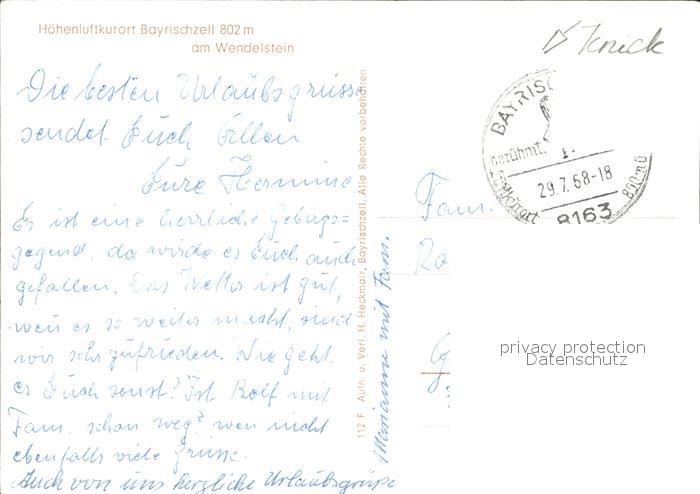 Höhenluftkurort Bayrischzell 802 m
am Wendelstein
Die besten Urlaubsgrüsse
sendet Euch Allen
Eure Hermine
Es ist eine herrliche Gebirgs=
gegend, da würde es Euch auch
gefallen. Das Wetter ist gut,
wen es so weiter macht, sind
wir sehr zufrieden. Wie geht
es Euch sonst? Ist Rolf mit
Fam. schon weg? wen nicht
ebenfalls viele Grüsse.
Auch von uns herzliche Urlaubsgrüße
Marianne mit Fam.
112 F Aufn. u. Verl. H. Heckmair, Bayrischzell. Alle Rechte vorbehalten
Knick
BAYRISC
29.7.68-18
8163
800 m ü
Fam.
privacy protection
Datenschutz